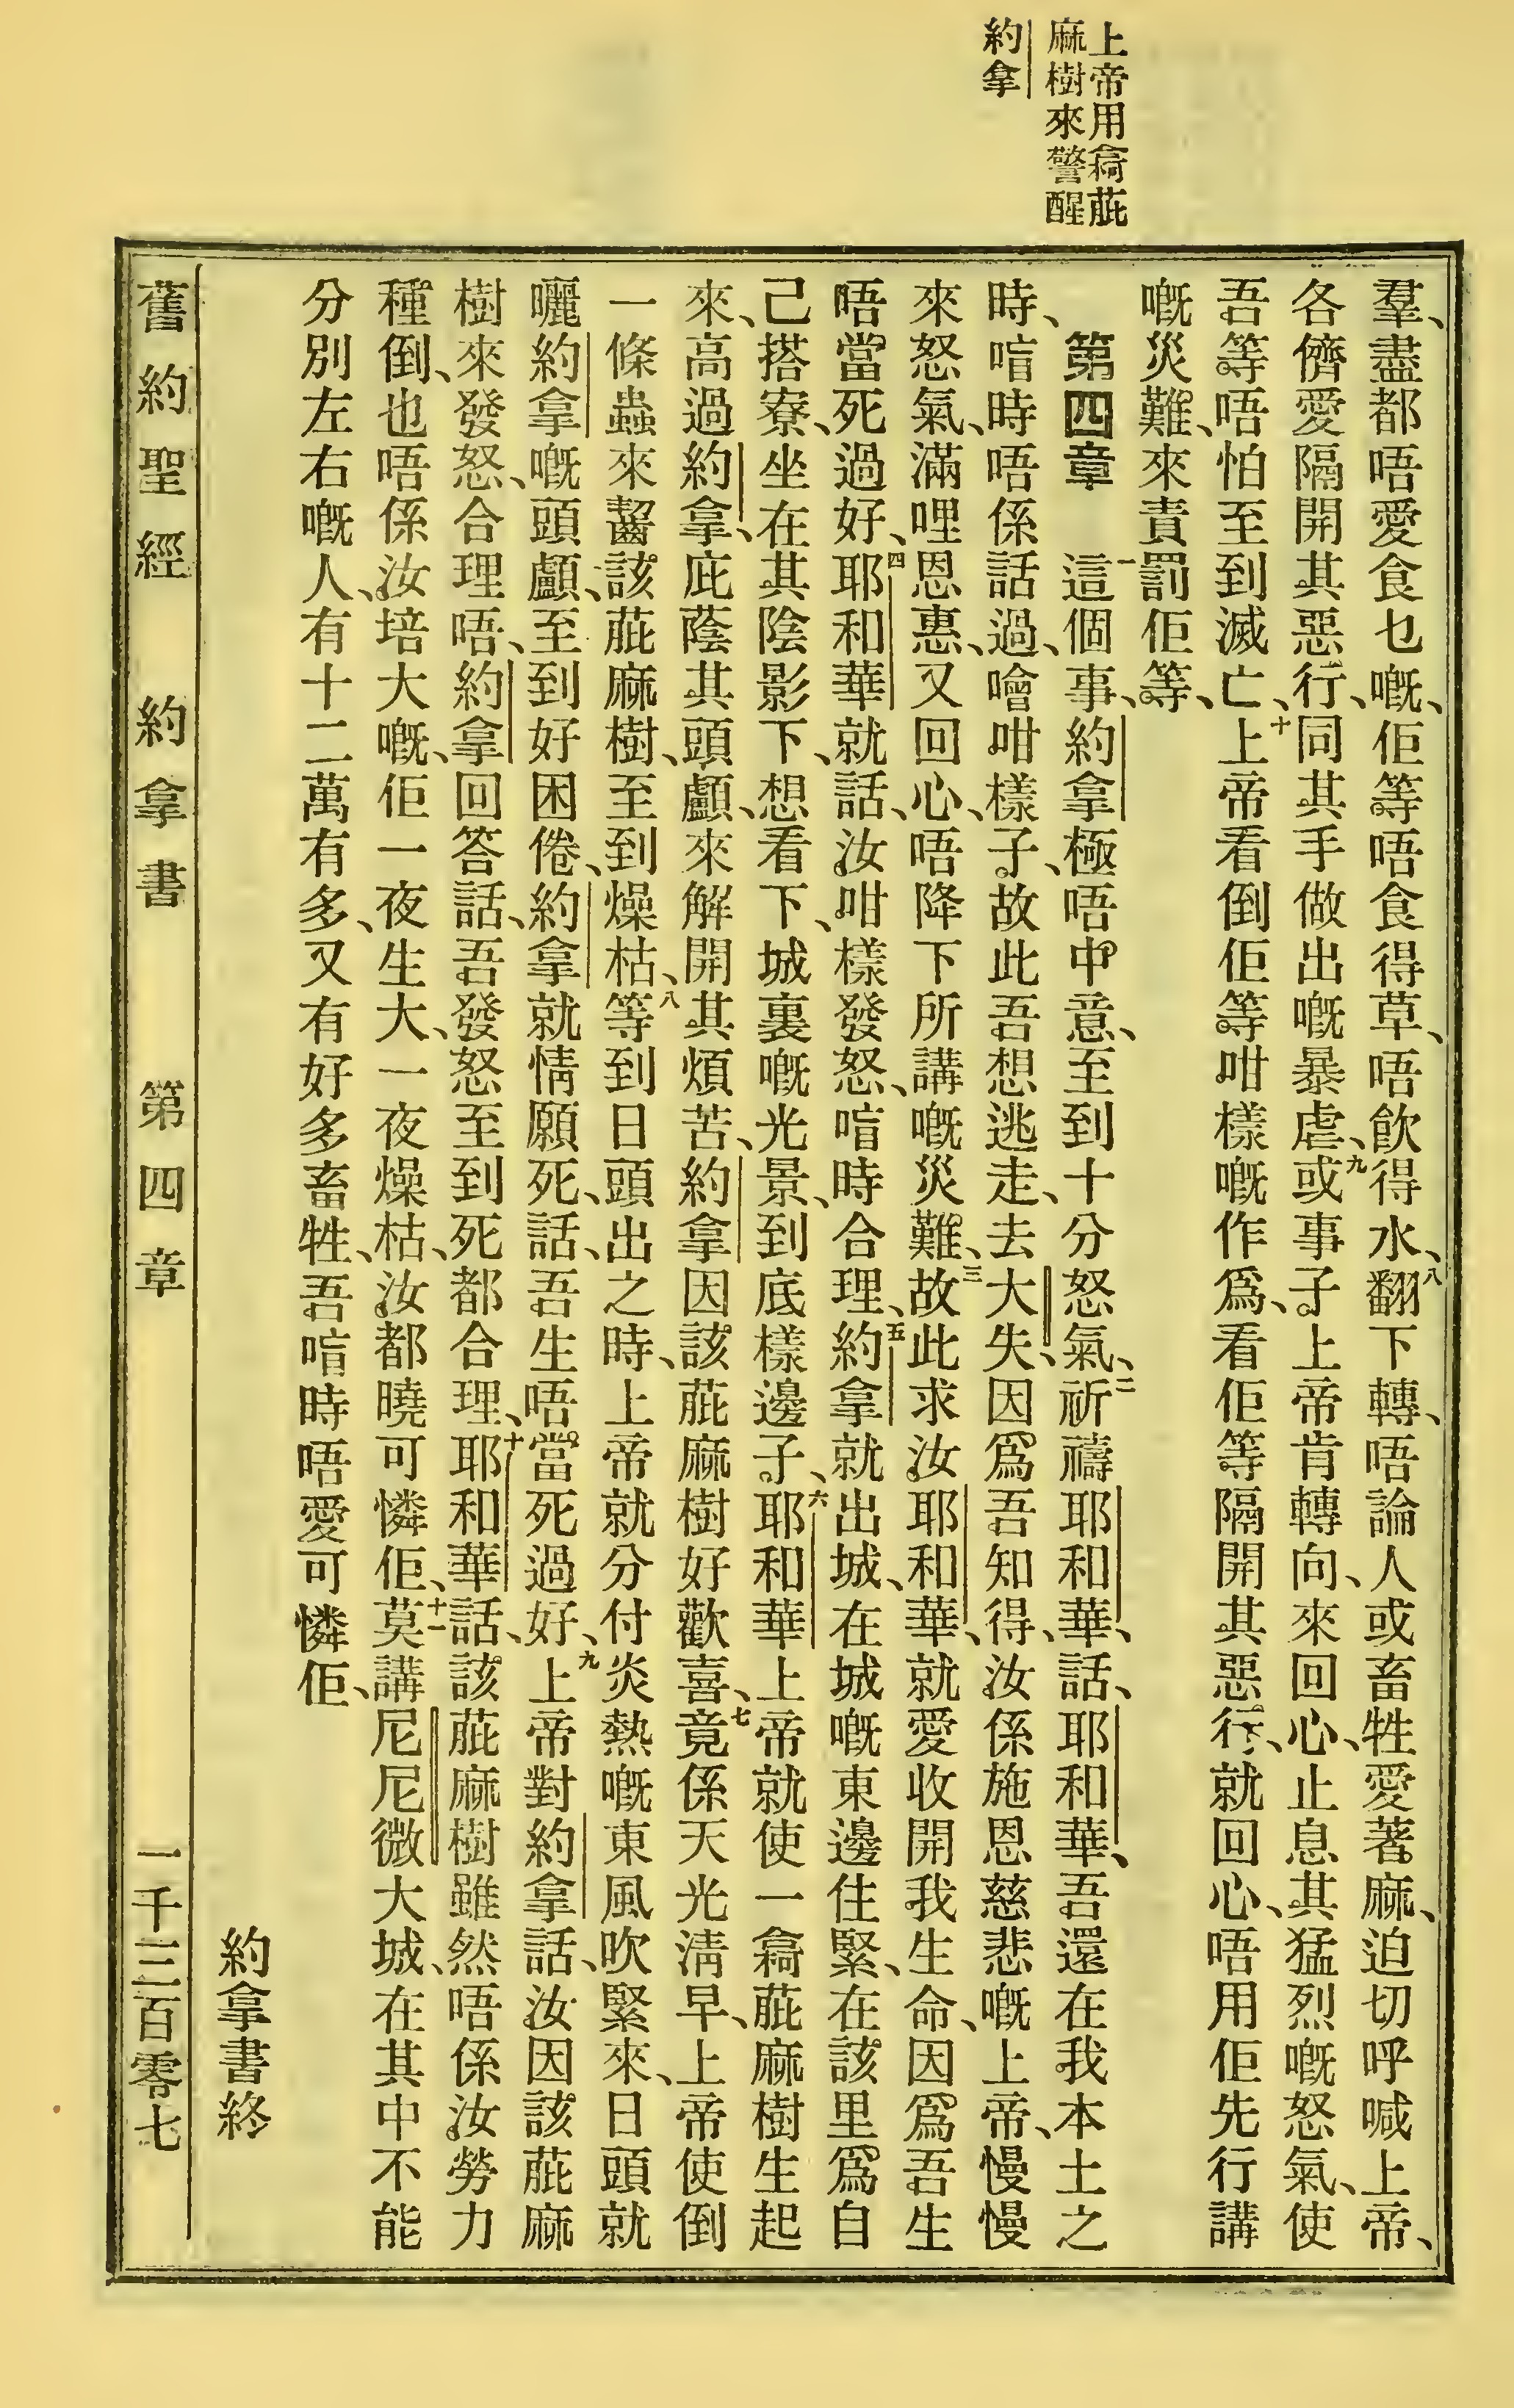 上帝用𣖙萞
麻樹來警醒
約拿
羣、盡都唔愛食乜嘅、佢等唔食得草、唔飲得水、八翻下轉、唔論人或畜牲愛著麻、迫切呼喊上帝、
各儕愛隔開其惡行、同其手做出嘅暴虐、九或事子上帝肯轉向、來回心、止息其猛烈嘅怒氣、使
吾等唔怕至到滅亡、十上帝看倒佢等咁樣嘅作爲、看佢等隔開其惡行、就回心、唔用佢先行講
嘅災難、來責罰佢等、
第四章　一這個事、約拿極唔中意、至到十分怒氣、二祈禱耶和華、話、耶和華、吾還在我本土之
時、喑時唔係話過、噲咁樣子、故此吾想逃走、去大失、因爲吾知得、汝係施恩慈悲嘅上帝、慢慢
來怒氣、滿哩恩惠、又回心、唔降下所講嘅災難、三故此求汝耶和華、就愛收開我生命、因爲吾生
唔當死過好、四耶和華就話、汝咁樣發怒、喑時合理、五約拿就出城、在城嘅東邊住緊、在該里爲自
己搭寮、坐在其陰影下、想看下、城裏嘅光景、到底樣邊子、六耶和華上帝就使一蔸萞麻樹生起
來、高過約拿、庇蔭其頭顱、來解開其煩苦、約拿因該萞麻樹好歡喜、七竟係天光淸早、上帝使倒
一條蟲來齧該萞麻樹、至到燥枯、八等到日頭出之時、上帝就分付炎熱嘅東風吹緊來、日頭就
曬約拿嘅頭顱、至到好困倦、約拿就情願死、話、吾生唔當死過好、九上帝對約拿話、汝因該萞麻
樹來發怒、合理唔、約拿回答話、吾發怒至到死都合理、十耶和華話、該萞麻樹雖然唔係汝勞力
種倒、也唔係汝培大嘅、佢一夜生大、一夜燥枯、汝都曉可憐佢、十一莫講尼尼微大城、在其中不能
分別左右嘅人、有十二萬有多、又有好多畜牲、吾喑時唔愛可憐佢、
約拿書終
舊約聖經　約拿書　第四章　一千三百零七